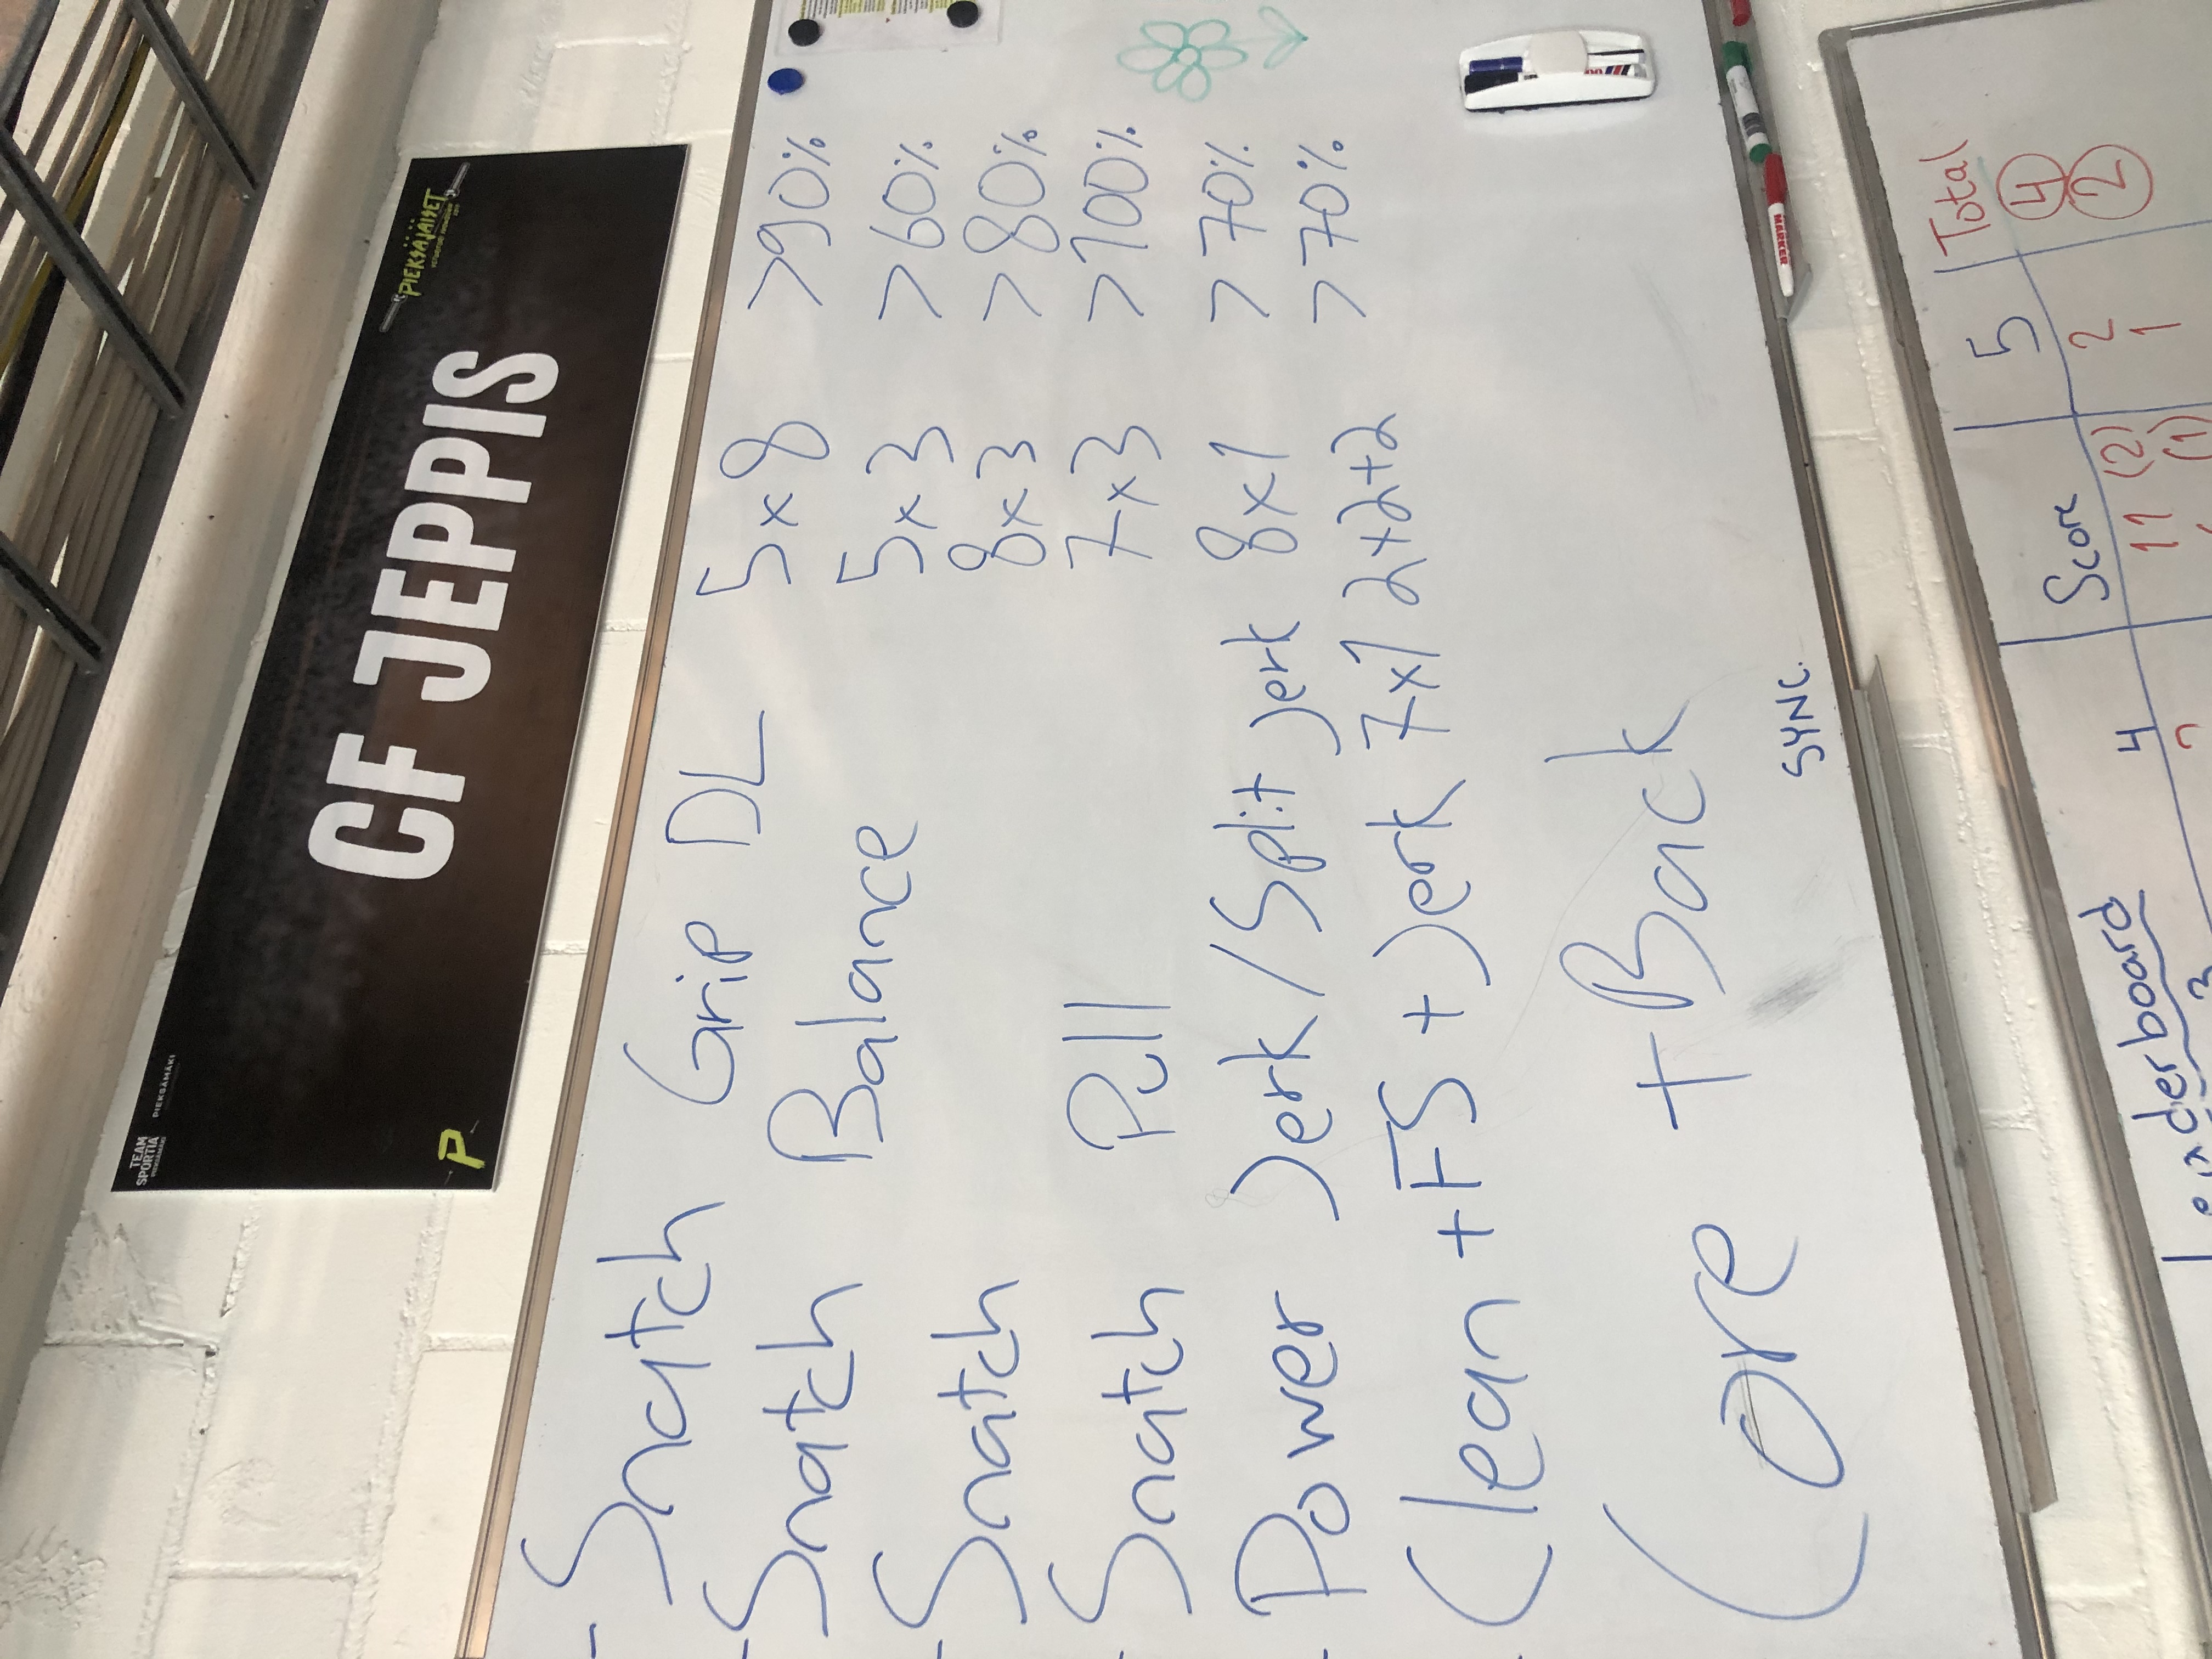 PIEKSÄJÄISET
CF JEPPIS
TEAM
SPORTIA
PIEKSÄMÄKI
P
- Snatch Grip DL 5x8 >90%
- Snatch Balance 5x3 >60%
- Snatch 8x3 >80%
- Snatch Pull 7x3 >100%
- Power Jerk / Split Jerk 8x1 >70%
- Clean + FS + Jerk 7x1 2+2+2 >70%
Core + Back
SYNC.
MARKER
Leaderboard
3 4 Score 5 Total
11 (2) 2 4
(1) 1 2